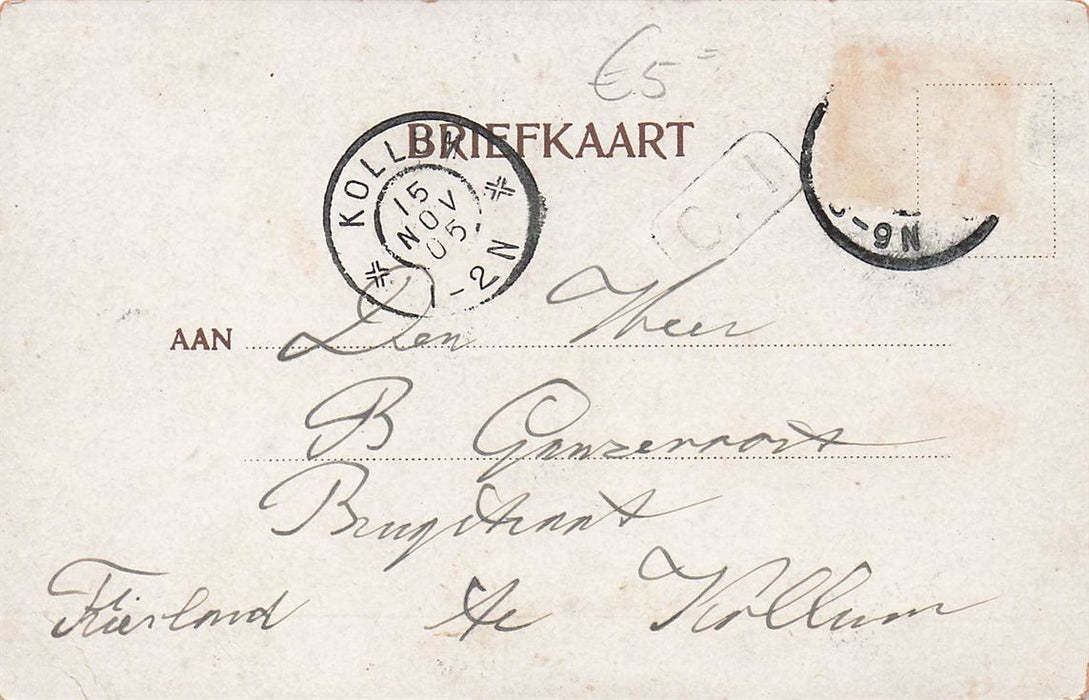 €5=
BRIEFKAART
KOLLUM
15
NOV
05
-2N
-9N
AAN Den Heer
B Ganzevoort
Brugstraat
Friesland te Kollum